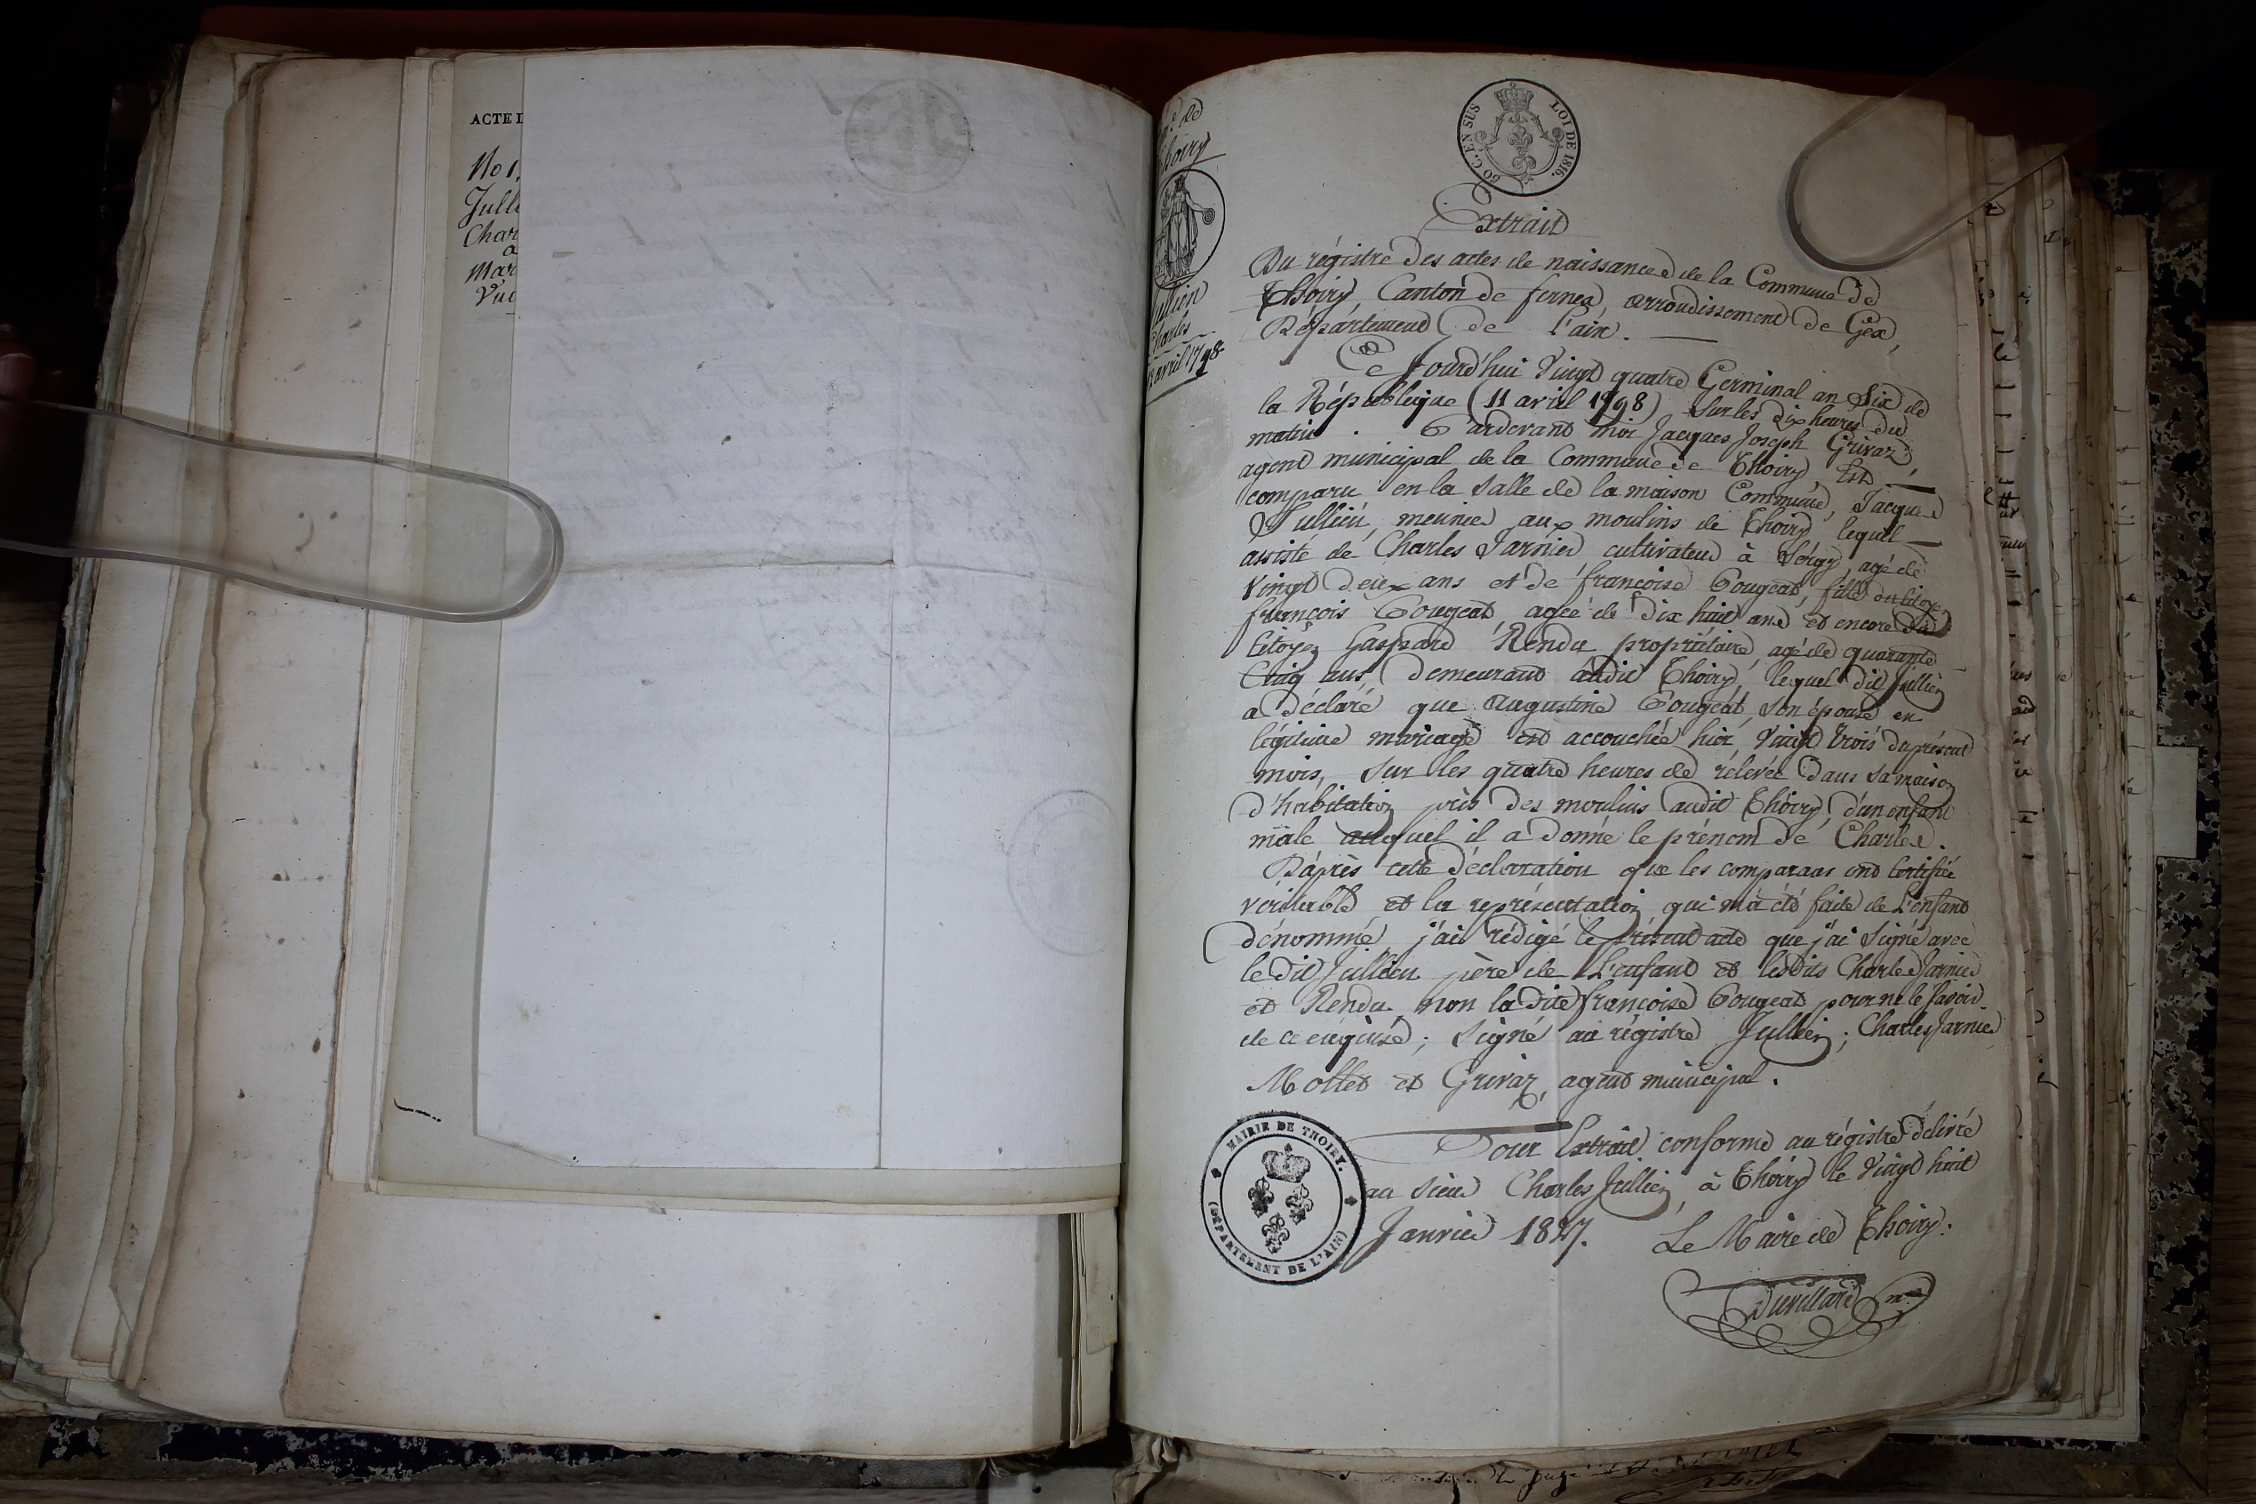 ACTE
No 1,
Jull
Char
a
Mar
Vuc
de
Thoiry
Jullien
Charles
avril 1798
50 C. EN SUS
LOI DE 1816.
Extrait
Du régistre des actes de naissance de la Commune de
Thoiry, Canton de fernex, arrondissement de Gex,
Département de l'ain.
Ce jourd'hui Vingt quatre Germinal an Six de
la République (11 avril 1798) Sur les dix heures du
matin. Pardevant moi Jacques Joseph Grivaz,
agent municipal de la Commune de Thoiry Est
comparu en la Salle de la maison Commune, Jacques
Jullien, meunier aux moulins de Thoiry, lequel
assisté de Charles Jarnier cultivateur à Sergy, agé de
Vingt deux ans et de françoise Gougeat, fille du Citoyen
françois Gougeat agée de Dix huit ans et encore du
Citoyen Gaspard Rendu propriétaire, agé de quarante
Cinq ans, Demeurant audit Thoiry, lequel dit Jullien
a déclaré que augustine Gougeat, Son épouse en
légitime mariage est accouchée hier, Vingt trois du présent
mois, Sur les quatre heures de rélevée Dans Sa maison
d'habitation près des moulins audit Thoiry, d'un enfant
mâle auquel il a donné le prénom de Charles.
D'après cette déclaration que les comparans ont Certifié
véritable et la représentation qui m'a été faite de L'enfant
dénommé, j'ai rédigé le présent acte que j'ai Signé avec
le dit Jullien père de L'enfant et lesdits Charles Jarnier
et Rendu non la dite françoise Gougeat pour ne le Savoir
de ce enquise; Signé au régistre Jullien; Charles Jarnier
Mollet et Grivaz, agent municipal.
Pour Extrait conforme au régistre délivré
au Sieur Charles Jullien, à Thoiry le Vingt huit
Janvier 1827. Le Maire de Thoiry.
MAIRIE DE THOIRY.
(DÉPARTEMENT DE L'AIN)
Duvillard